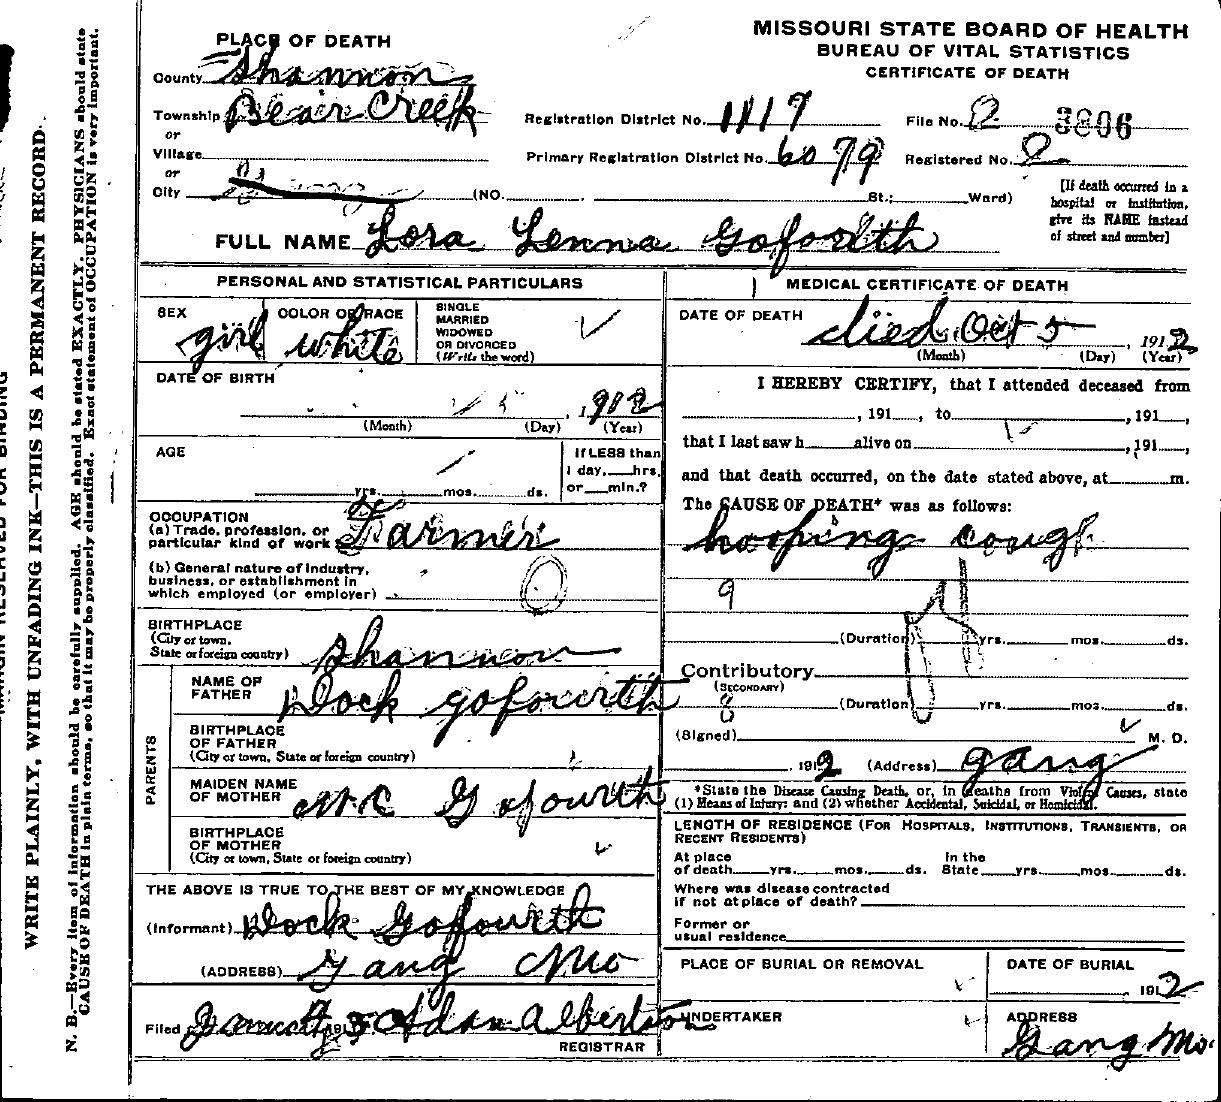 MISSOURI STATE BOARD OF HEALTH
BUREAU OF VITAL STATISTICS
CERTIFICATE OF DEATH
PLACE OF DEATH
County Shannon
Township Bear Creek
or
Village
or
City
Registration District No. 1117
File No. 2 3806
Primary Registration District No. 6079
Registered No. 2
(NO. St.; Ward)
[If death occurred in a
hospital or institution,
give its NAME instead
of street and number]
FULL NAME Lora Lenna Goforth
PERSONAL AND STATISTICAL PARTICULARS
SEX girl
COLOR OR RACE white
SINGLE
MARRIED
WIDOWED
OR DIVORCED
(Write the word)
DATE OF BIRTH
, 1912
(Month) (Day) (Year)
AGE
yrs. mos. ds.
If LESS than
1 day, hrs.
or min.?
OCCUPATION
(a) Trade, profession, or
particular kind of work Farmer
(b) General nature of industry,
business, or establishment in
which employed (or employer)
BIRTHPLACE
(City or town,
State or foreign country) Shannon
PARENTS
NAME OF
FATHER Dock gofourth
BIRTHPLACE
OF FATHER
(City or town, State or foreign country)
MAIDEN NAME
OF MOTHER Gofourth
BIRTHPLACE
OF MOTHER
(City or town, State or foreign country)
THE ABOVE IS TRUE TO THE BEST OF MY KNOWLEDGE
(Informant) Dock Gofourth
(ADDRESS) Gang Mo
Filed 191 Adan Albertson
REGISTRAR
MEDICAL CERTIFICATE OF DEATH
DATE OF DEATH died Oct 5, 1912
(Month) (Day) (Year)
I HEREBY CERTIFY, that I attended deceased from
, 191 , to , 191 ,
that I last saw h alive on , 191 ,
and that death occurred, on the date stated above, at m.
The CAUSE OF DEATH* was as follows:
hooping cough
9
(Duration) yrs. mos. ds.
Contributory
(SECONDARY)
8
(Duration) yrs. mos. ds.
(Signed) M. D.
, 1912 (Address) gang
*State the Disease Causing Death, or, in deaths from Violent Causes, state
(1) Means of Injury; and (2) whether Accidental, Suicidal, or Homicidal.
LENGTH OF RESIDENCE (FOR HOSPITALS, INSTITUTIONS, TRANSIENTS, OR
RECENT RESIDENTS)
At place
of death yrs. mos. ds.
In the
State yrs. mos. ds.
Where was disease contracted
if not at place of death?
Former or
usual residence
PLACE OF BURIAL OR REMOVAL
DATE OF BURIAL
, 1912
UNDERTAKER
ADDRESS
Gang Mo.
MARGIN RESERVED FOR BINDING
WRITE PLAINLY, WITH UNFADING INK—THIS IS A PERMANENT RECORD.
N. B.—Every item of information should be carefully supplied. AGE should be stated EXACTLY. PHYSICIANS should state
CAUSE OF DEATH in plain terms, so that it may be properly classified. Exact statement of OCCUPATION is very important.